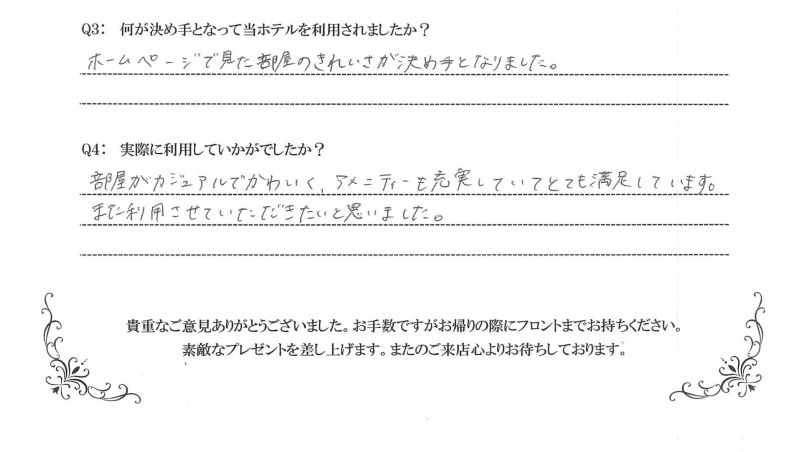 Q3: 何が決め手となって当ホテルを利用されましたか？
ホームページで見た部屋のきれいさが決め手となりました。
Q4: 実際に利用していかがでしたか？
部屋がカジュアルでかわいく、アメニティーも充実していてとても満足しています。
また利用させていただきたいと思いました。
貴重なご意見ありがとうございました。お手数ですがお帰りの際にフロントまでお持ちください。
素敵なプレゼントを差し上げます。またのご来店心よりお待ちしております。